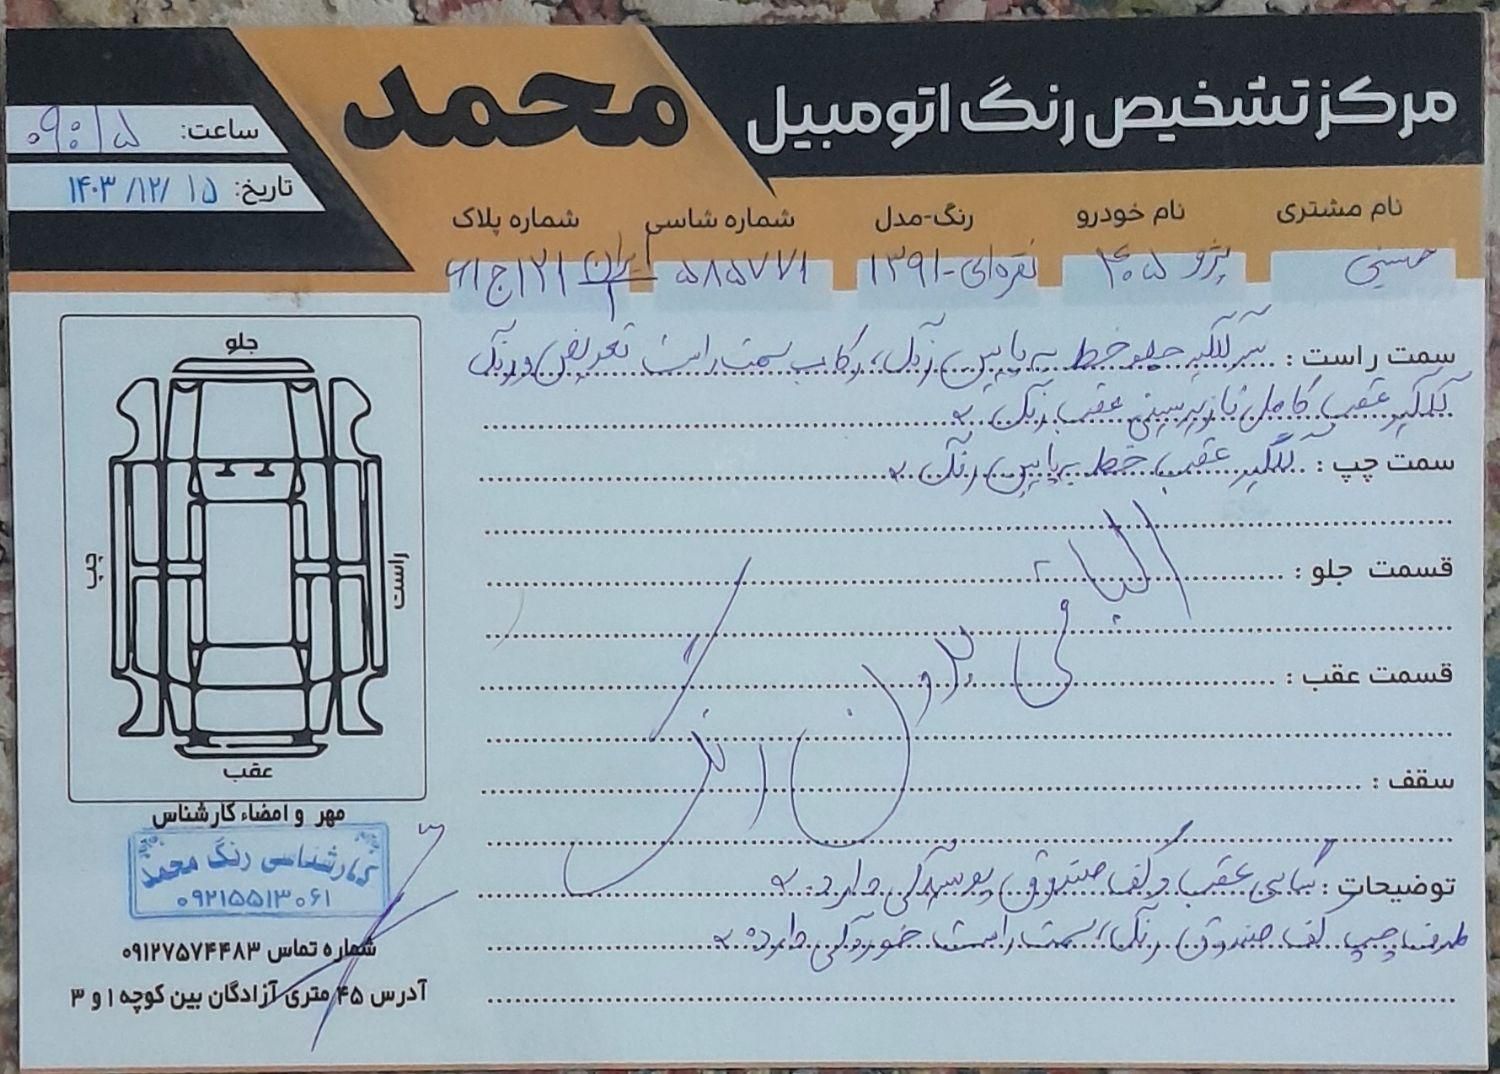 مرکز تشخیص رنگ اتومبیل محمد
ساعت: ۰۹:۱۵
تاریخ: ۱۴۰۳/۱۲/۱۵
نام مشتری نام خودرو رنگ-مدل شماره شاسی شماره پلاک
حسنی پژو ۴۰۵ نقره‌ای-۱۳۹۱ ۵۸۵۷۷۱ ایران ۱۲۱ج۶۱
سمت راست : سر گلگیر جلو خط به پایین رنگ، رکاب سمت راست تعویض و رنگ
گلگیر عقب کامل تا زیر سینی عقب رنگ
سمت چپ : گلگیر عقب خط به پایین رنگ
قسمت جلو :
الباقی بدون رنگ
قسمت عقب :
سقف :
توضیحات : سینی عقب و کف صندوق پوسیدگی دارد.
طرف چپ کف صندوق رنگ، سمت راست خوردگی دارد.
جلو
چپ
راست
عقب
مهر و امضاء کارشناس
کارشناسی رنگ محمد
۰۹۲۱۵۵۱۳۰۶۱
شماره تماس ۰۹۱۲۷۵۷۴۴۸۳
آدرس ۴۵ متری آزادگان بین کوچه ۱ و ۳